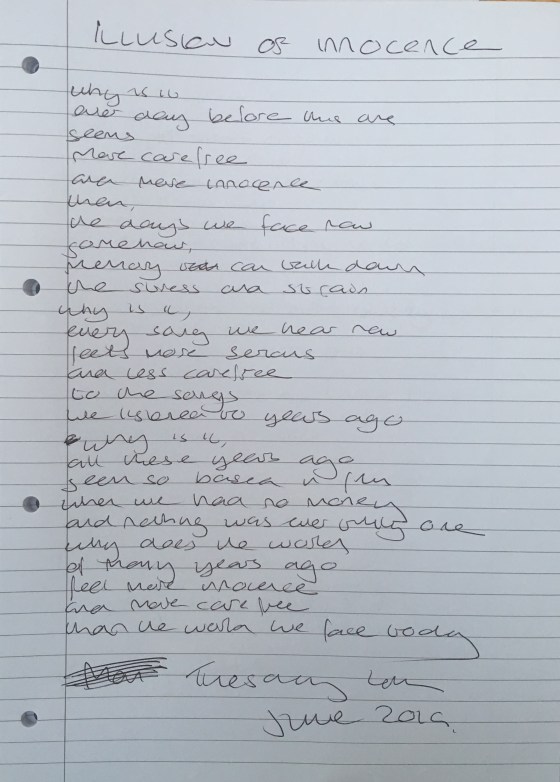 ILLUSION OF INNOCENCE
why is it
ever day before this one
seems
more carefree
and more innocence
then,
the days we face now
somehow,
memory can down
the stress and strain
why is it,
every song we hear now
feels more serious
and less carefree
to the songs
we listened to years ago
why is it,
all these years ago
seem so based in fun
when we had no money
and nothing was ever one
why does the world
of many years ago
feel more innocence
and more care free
than the world we face today
Tuesday
June 2019.